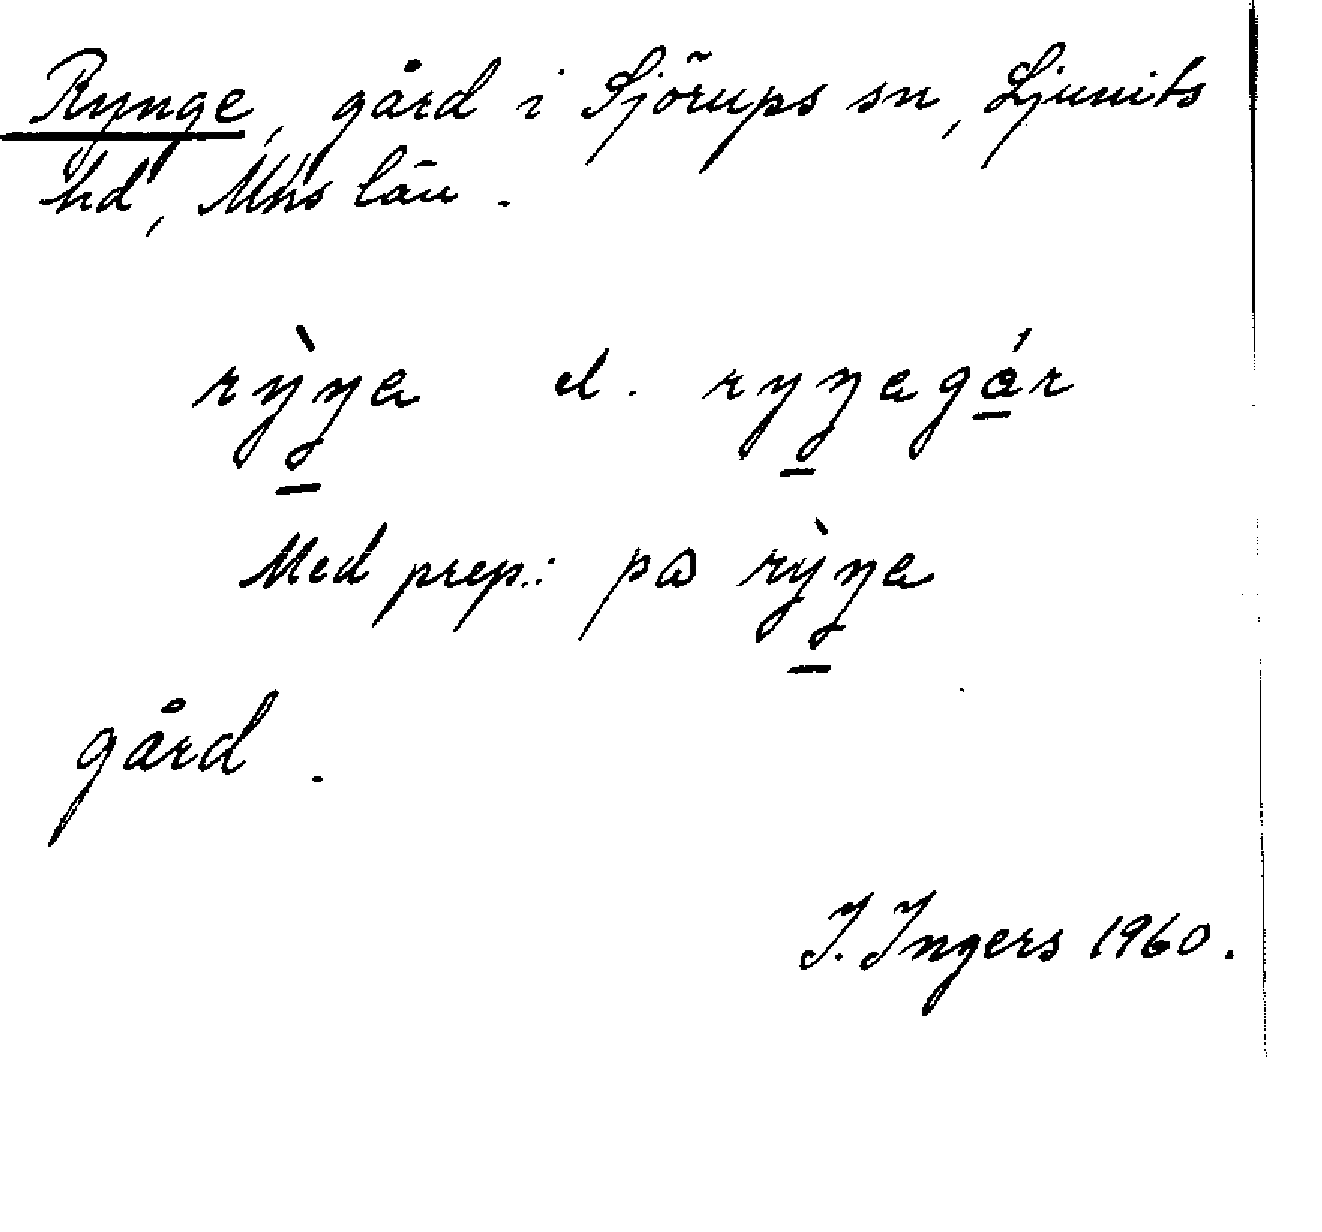 Rynge, gård i Sjörups sn, Ljunits
hd, Mhs län.
rỳŋa el. ryŋagár
Med prep.: pɷ rỳŋa
gård.
I. Ingers 1960.